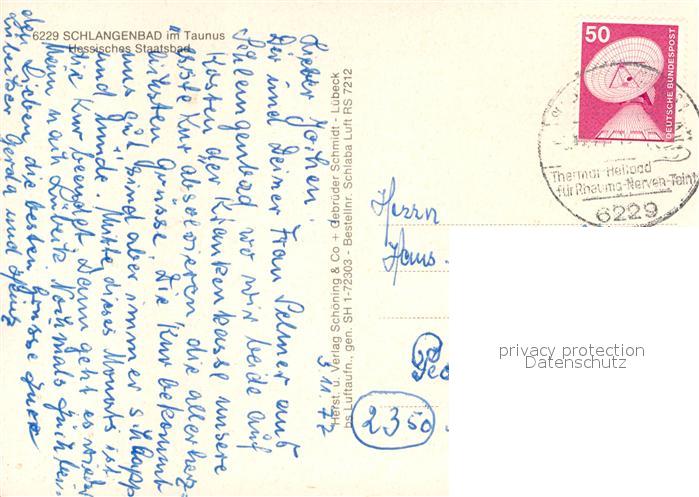 6229 SCHLANGENBAD im Taunus
Hessisches Staatsbad
3.11.77
Lieber Jochen!
Dir und Deiner Frau Selmer aus
Schlangenbad wo wir beide auf
Kosten der Krankenkasse unsere
erste Kur absolvieren die allerherz-
lichsten Grüsse Die Kur bekommt
uns gut sind aber immer schlapp
und müde. Mitte dieses Monats ist
die Kur beendet Dann geht es wieder
heim nach Lübeck Nochmals Euch
den Lieben die besten Grüsse Eure
Gerda und Heinz
Herst. u. Verlag Schöning & Co + Gebrüder Schmidt - Lübeck
bs Luftaufn., gen. SH 1-72303 - Bestellnr. Schlaba Luft RS 7212
50
DEUTSCHE BUNDESPOST
Thermal-Heilbad
für Rheuma-Nerven-Teint
6229
Herrn
Hans
2350
privacy protection
Datenschutz